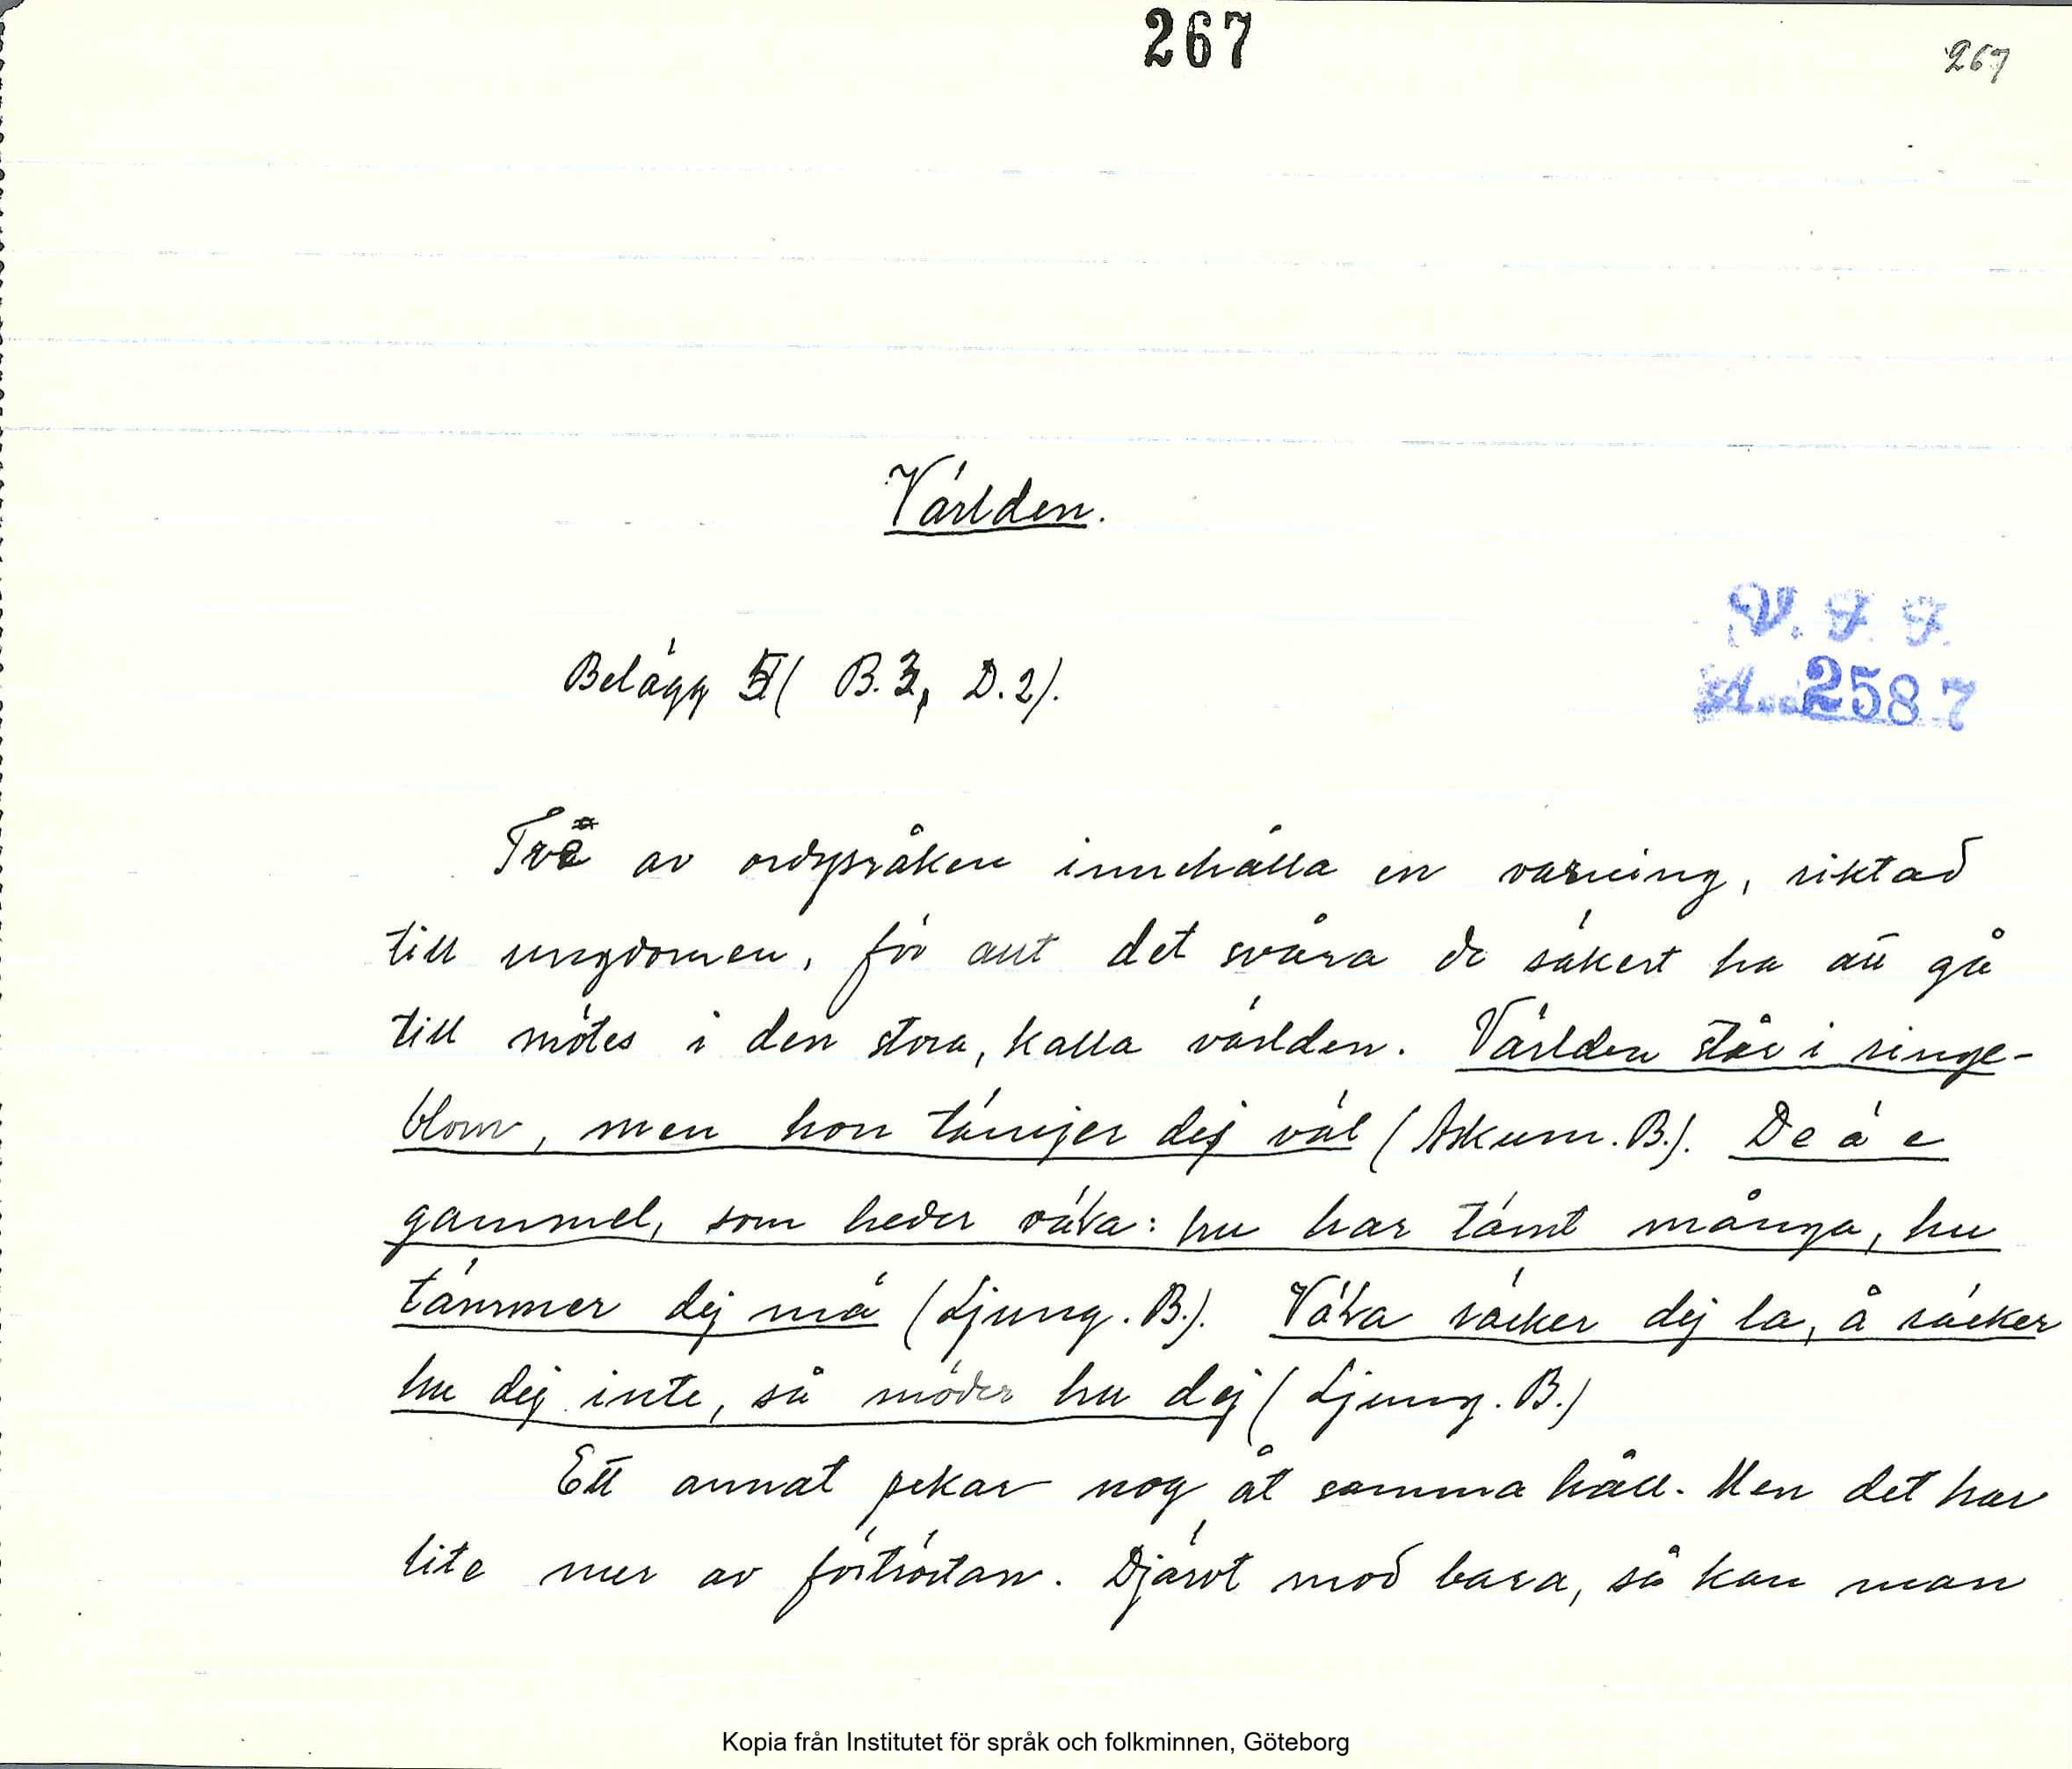 267
267
Världen.
V. F. F.
Belägg 5 ( B. 3, D. 2).
2587
Tre av ordspråken innehålla en varning, riktad
till ungdomen, för allt det svåra de säkert ha att gå
till mötes i den stora, kalla världen. Världen står i ringe-
blom, men hon tämjer dej väl (Askum. B.). De ä e
gammel, som heder väla: hu har tämt många, hu
tämmer dej mä (Ljung. B.). Väla räcker dej la, å räcker
hu dej inte, så möder hu dej ( Ljung. B.)
Ett annat pekar nog åt samma håll. Men det har
lite mer av förtröstan. Djärvt mod bara, så kan man
Kopia från Institutet för språk och folkminnen, Göteborg